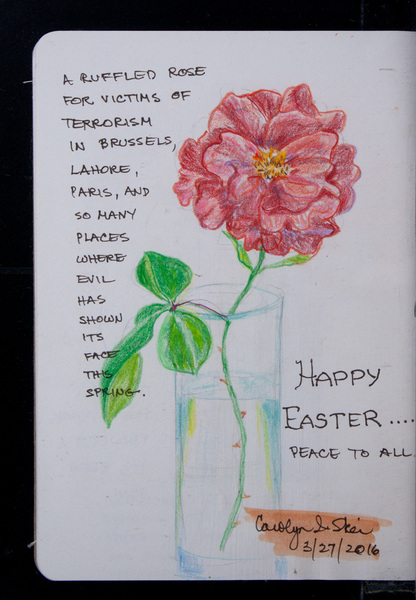 A RUFFLED ROSE
FOR VICTIMS OF
TERRORISM
IN BRUSSELS,
LAHORE,
PARIS, AND
SO MANY
PLACES
WHERE
EVIL
HAS
SHOWN
ITS
FACE
THIS
SPRING.
HAPPY
EASTER....
PEACE TO ALL
Carolyn
3/27/2016